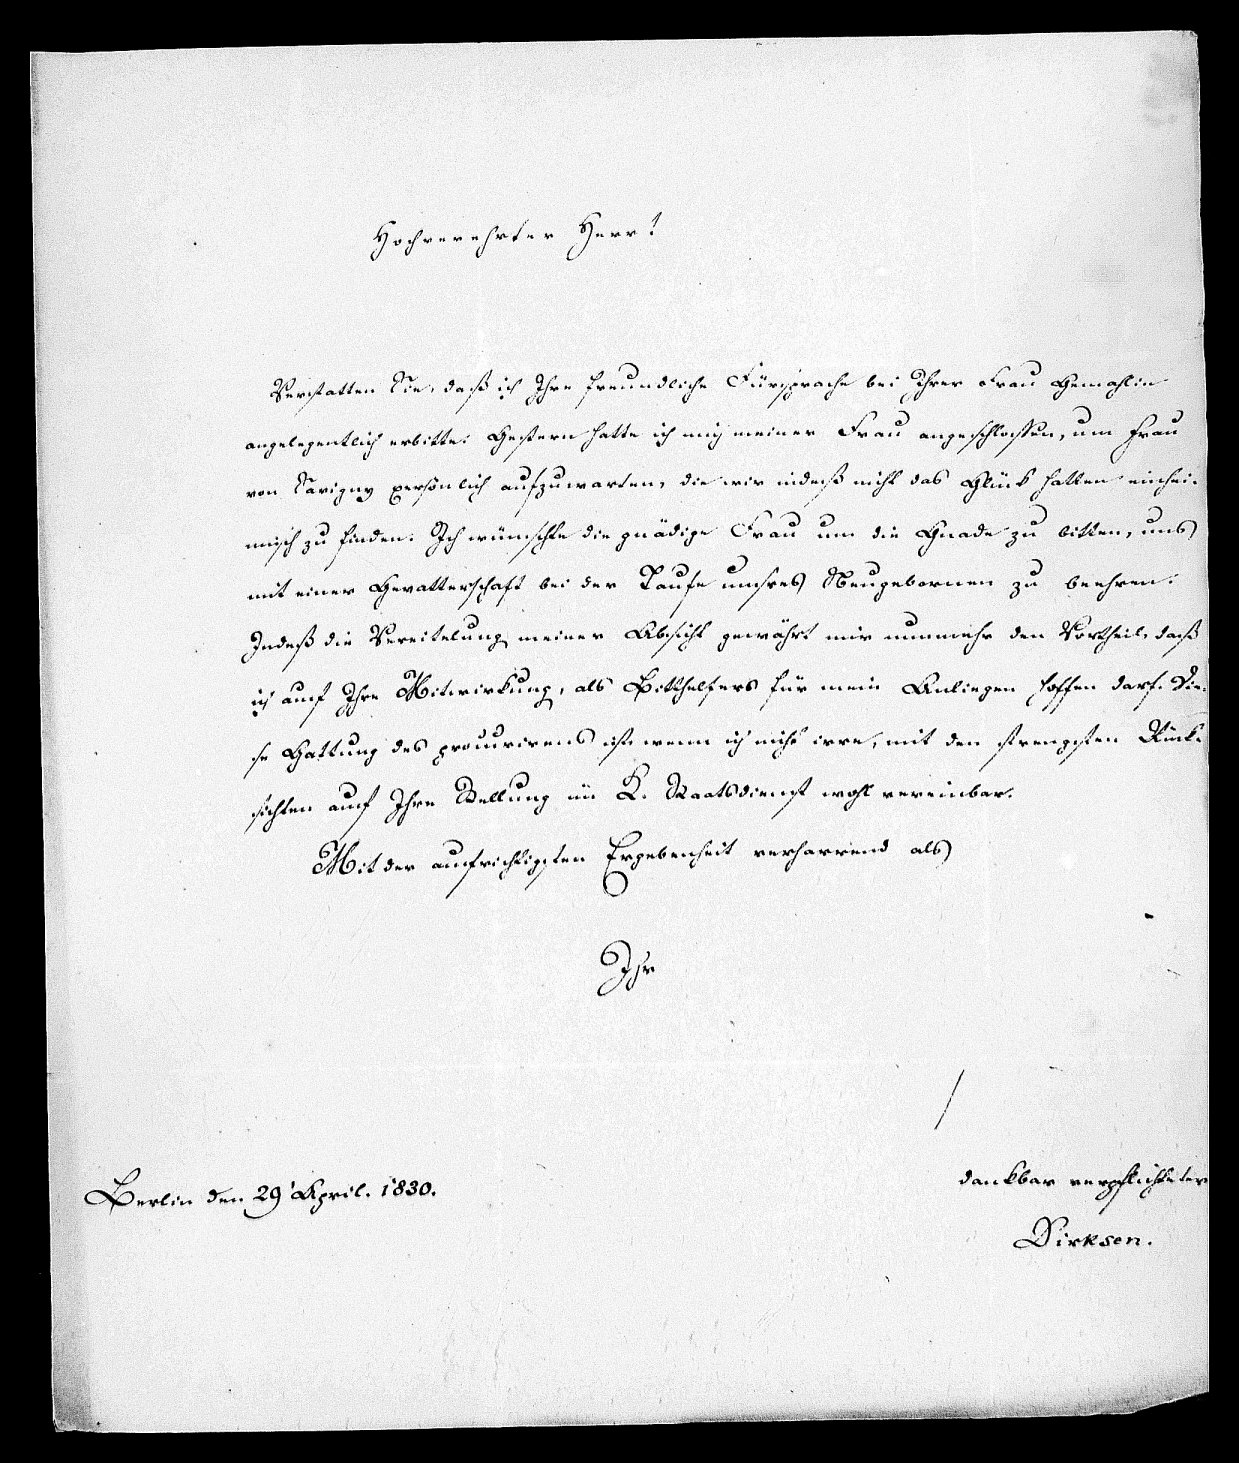 Hochverehrter Herr!
Verstatten Sie, daß ich Ihre freundliche Fürsprache bei Ihrer Frau Gemahlin
angelegentlich erbitte. Gestern hatte ich mich meiner Frau angeschlossen, um Frau
von Savigny persönlich aufzuwarten, die wir indeß nicht das Glück hatten einhei-
misch zu finden. Ich wünschte die gnädige Frau um die Gnade zu bitten, uns
mit einer Gevatterschaft bei der Taufe unsres Neugebornen zu beehren.
Indeß die Vereitelung meiner Absicht gewährt mir nunmehr den Vortheil, daß
ich auf Ihre Mitwirkung, als Bitthelfers für mein Anliegen hoffen darf. Die-
se Gattung des procurirens ist, wenn ich nicht irre, mit den strengsten Rück-
sichten auf Ihre Stellung im K. Staatsdienst wohl vereinbar.
Mit der aufrichtigsten Ergebenheit verharrend als
Ihr
dankbar verpflichteter
Berlin den 29' April. 1830.
Dirksen.